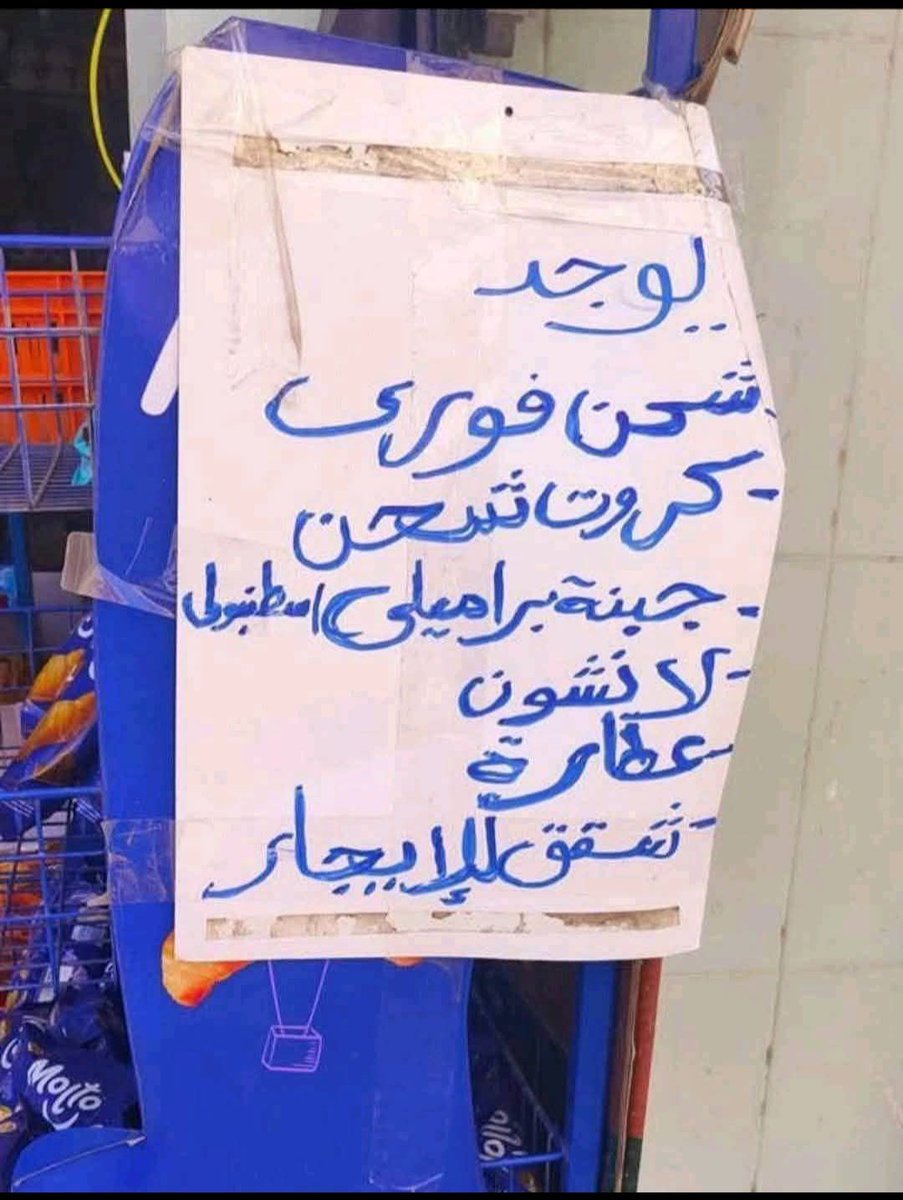 يوجد
- شحن فورى
- كروت شحن
- جبنة براميلى / اسطنبولى
- لانشون
- عطارة
- شقق للإيجار
Molto